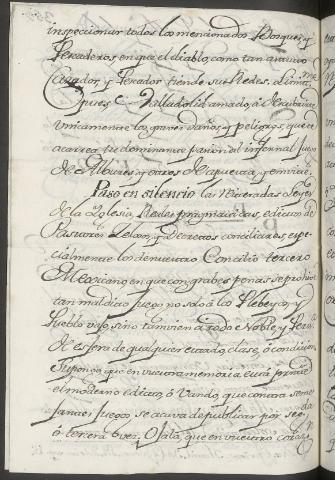 inspeccionar todos los mencionados Bosques, y
Pescaderos, en que el diablo, como tan antiguo
Cazador, y Pescador tiende sus Redes,
Valladolid amado, á descubrirte
unicamente los graves daños, y peligros, que te
acarrea tu dominante pasion al infernal juego
de Albures, y otros de apuesta, y envite.
Paso en silencio las Veneradas Leyes
de la Yglesia, Reales pragmaticas, edictos de
Pastores Zelosos, y Decretos conciliares, espe-
cialmente los de nuestro Concilio tercero
Mexicano, en que con grabes penas se prohibe
tan maldito juego no solo á los Plebeyos, y
Pueblo vajo, sino tambien á todo Noble, y Perso-
de esfera de qualquier estado, clase, ó condicion.
Supongo, que en vuestra memoria está
el moderno edicto, ó Vando, que contra seme-
jante juego se acava de publicar por seg.da
ó tercera vez. Ojalá, que en vuestro corazon